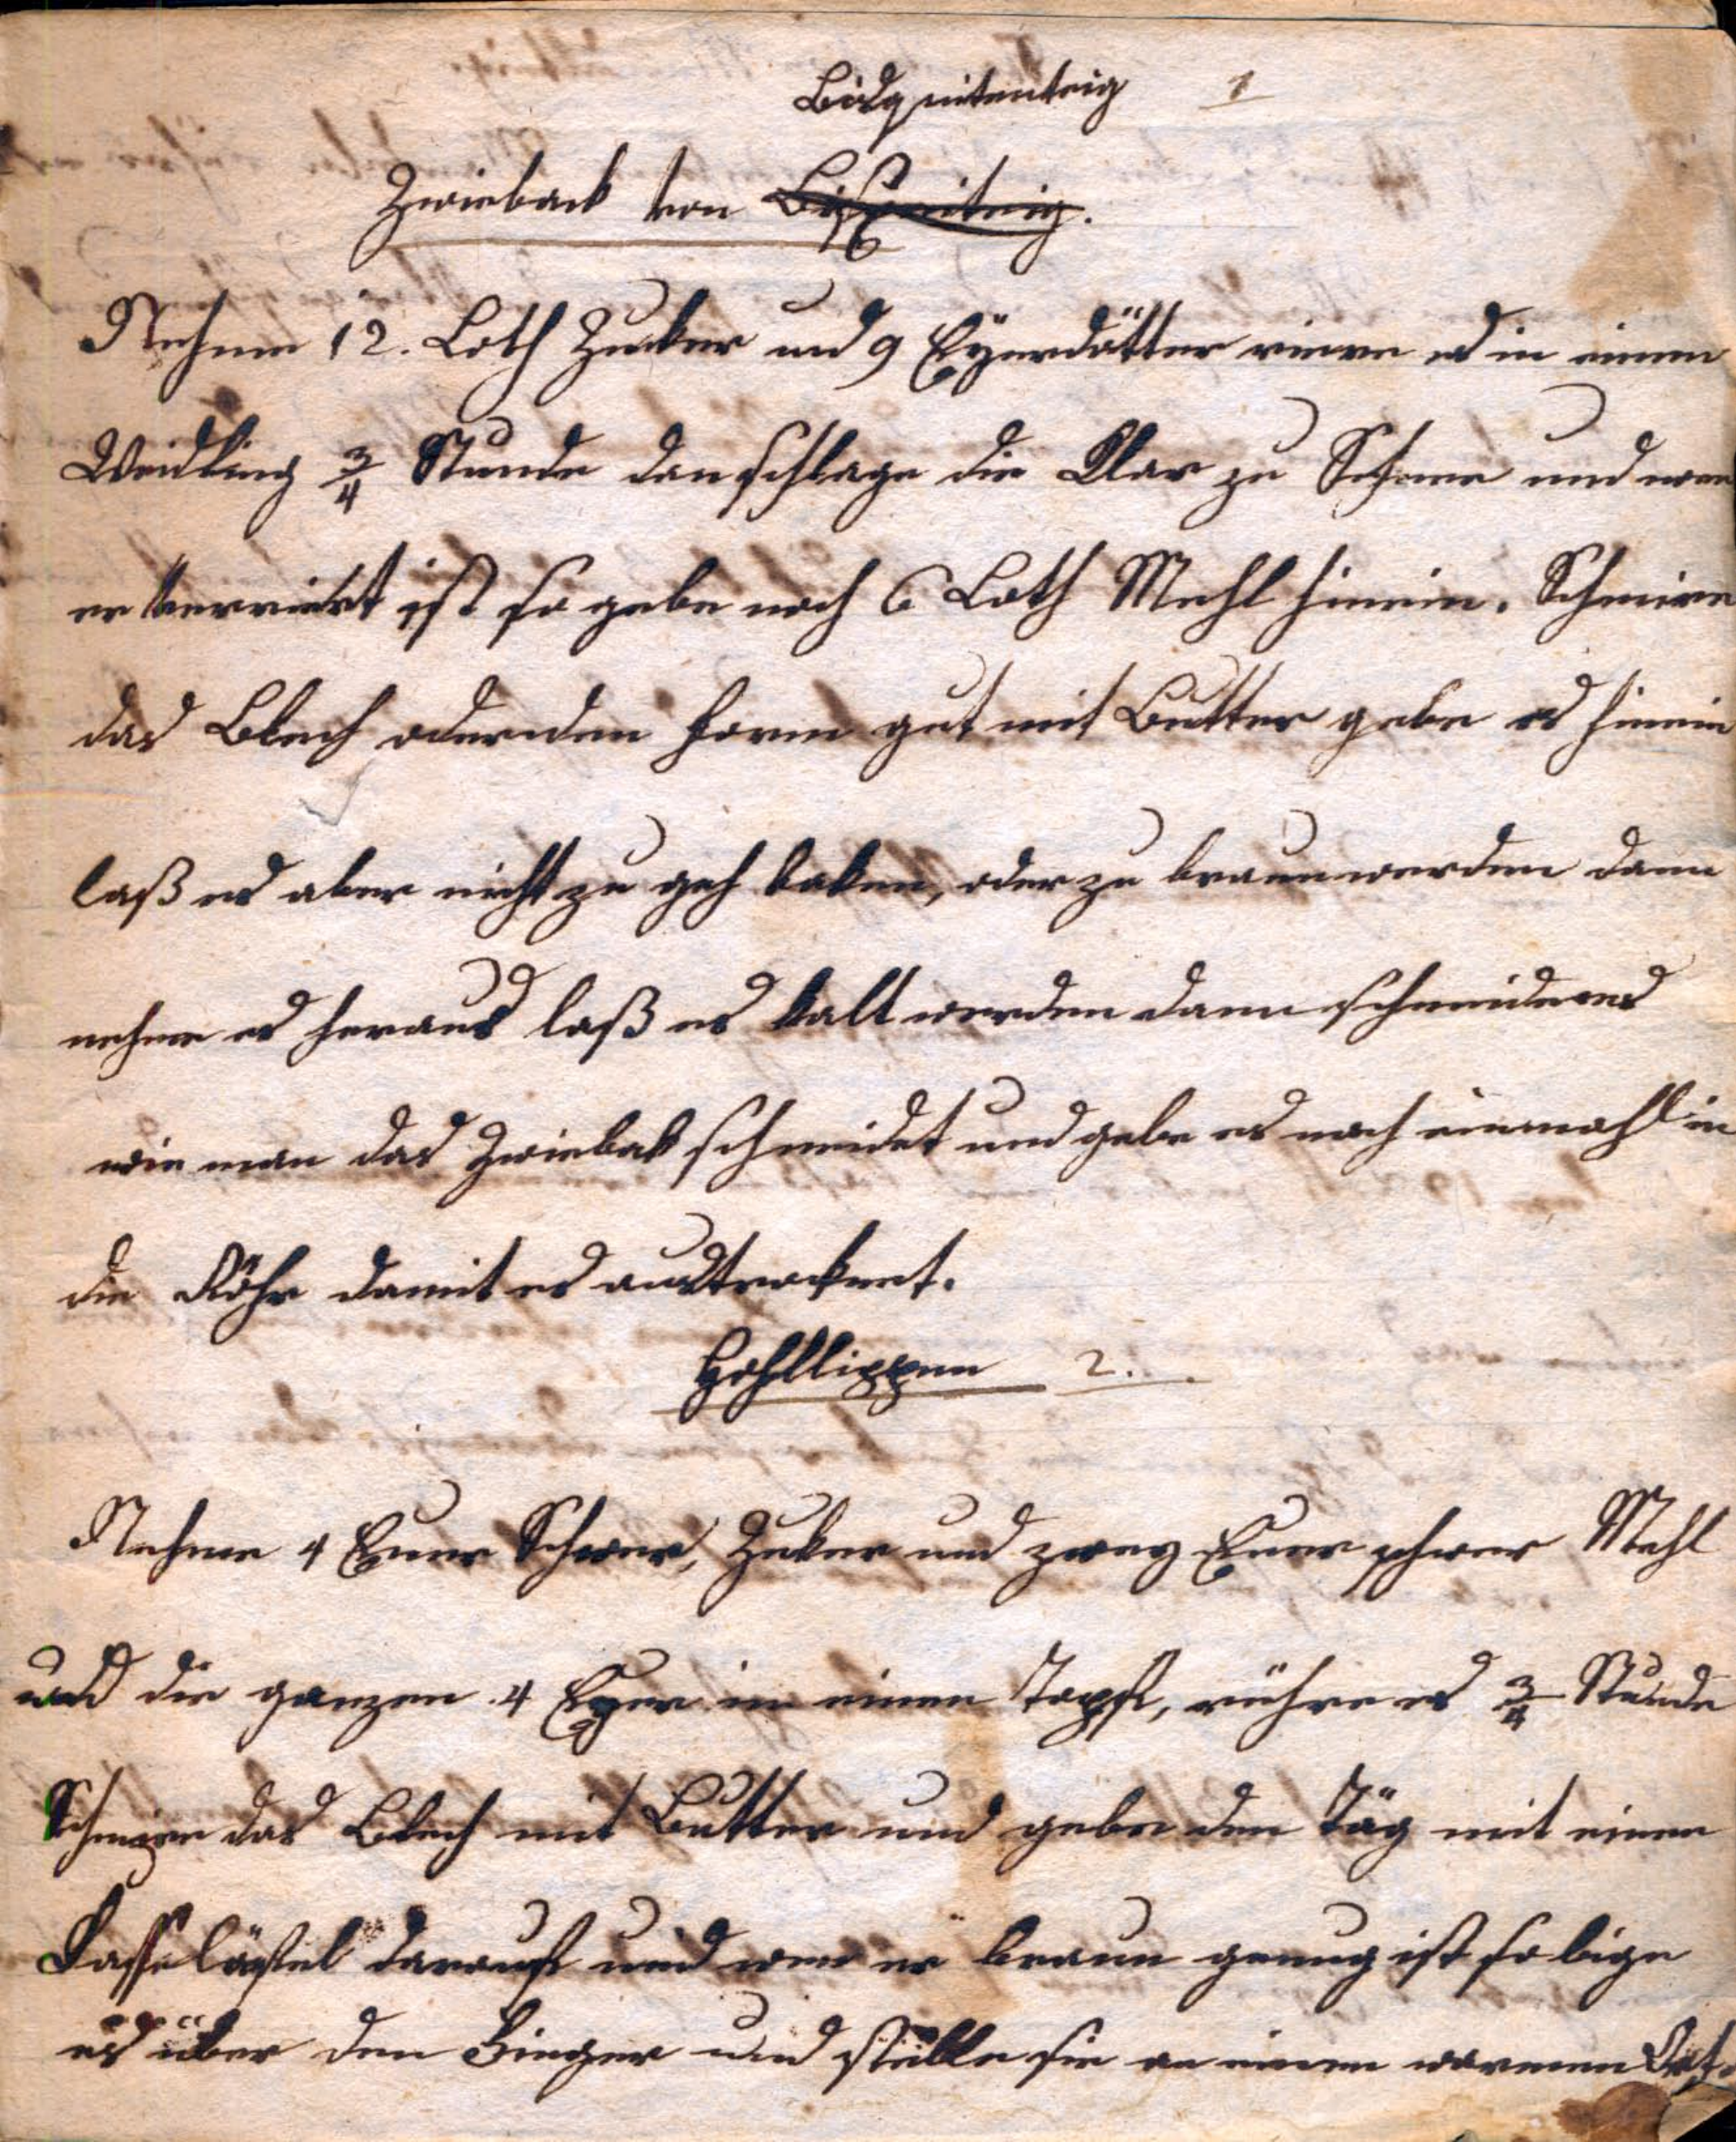 Bisquitenteig 1
Zwieback von
Nehme 12. Loth Zucker und 9 Eÿerdötter riere es in einen
Weidling 3/4 Stunde dan schlage die Klar zu Schnee und wen
er verriert ist so gebe noch 6 Loth Mehl hinein. Schmire
das Blech oder den Form gut mit Butter gebe es hinein
laß es aber nicht zu geh baken, oder zu braun werden dann
nehme es heraus laß es kalt werden dann schneide es
wie man das Zwiebak schneidet und gebe es noch einmahl in
die Röhr damit es austrocknet.
Hohllippen 2.
Nehme 4 Euer Schwer, Zuker und zwey Euer schwer Mehl
und die ganzen 4 Eyer in einen Topf, rühre es 3/4 Stunde
Schmire das Blech mit Butter und gebe den Täg mit einen
Kaffelöfel darauf und wen er braun genug ist so bige
es über den Finger und stelle sie an einen warmen Ort.